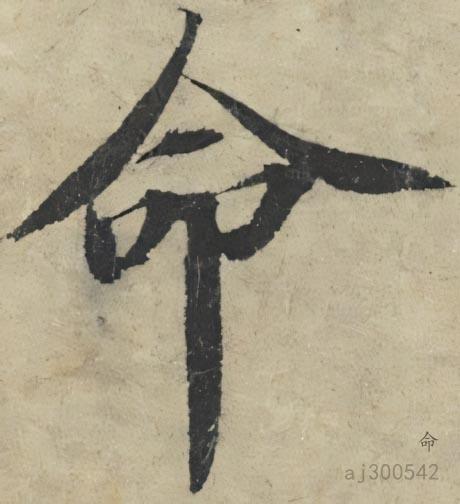 命
命
aj300542